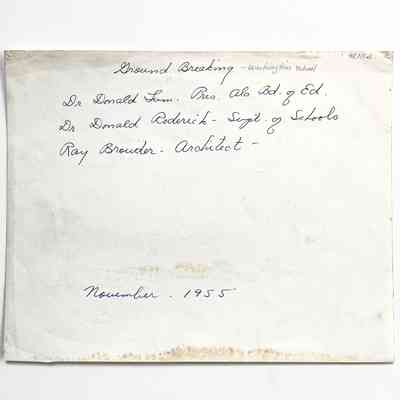 Ground Breaking - Washington School
Dr Donald Lum. Pres. Ala Bd. of Ed.
Dr Donald Roderick - Supt. of Schools
Ray Browder. Architect -
November. 1955